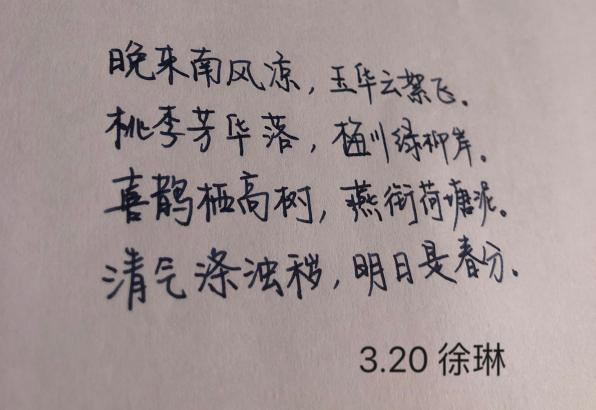 晚来南风凉，玉华云絮飞。
桃李芳华落，梅川绿柳岸。
喜鹊栖高树，燕衔荷塘泥。
清气涤浊秽，明日是春分。
3.20 徐琳